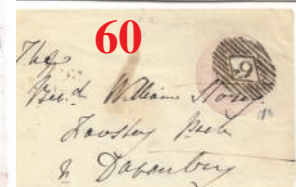 60
The
Revd William
Fawsley Park
Nr Daventry